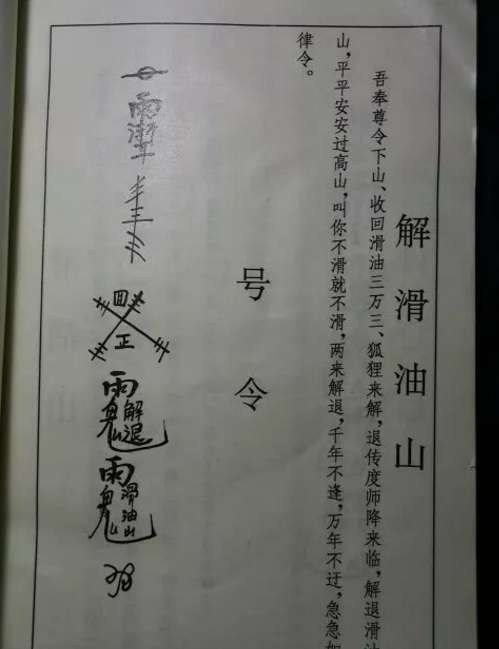 解滑油山
吾奉尊令下山、收回滑油三万三、狐狸来解,退传度师降来临,解退滑油
山,平平安安过高山,叫你不滑就不滑,两来解退,千年不逢,万年不迂,急急如
律令。
号令
雨
正
雨
鬼解退
雨
鬼滑油山